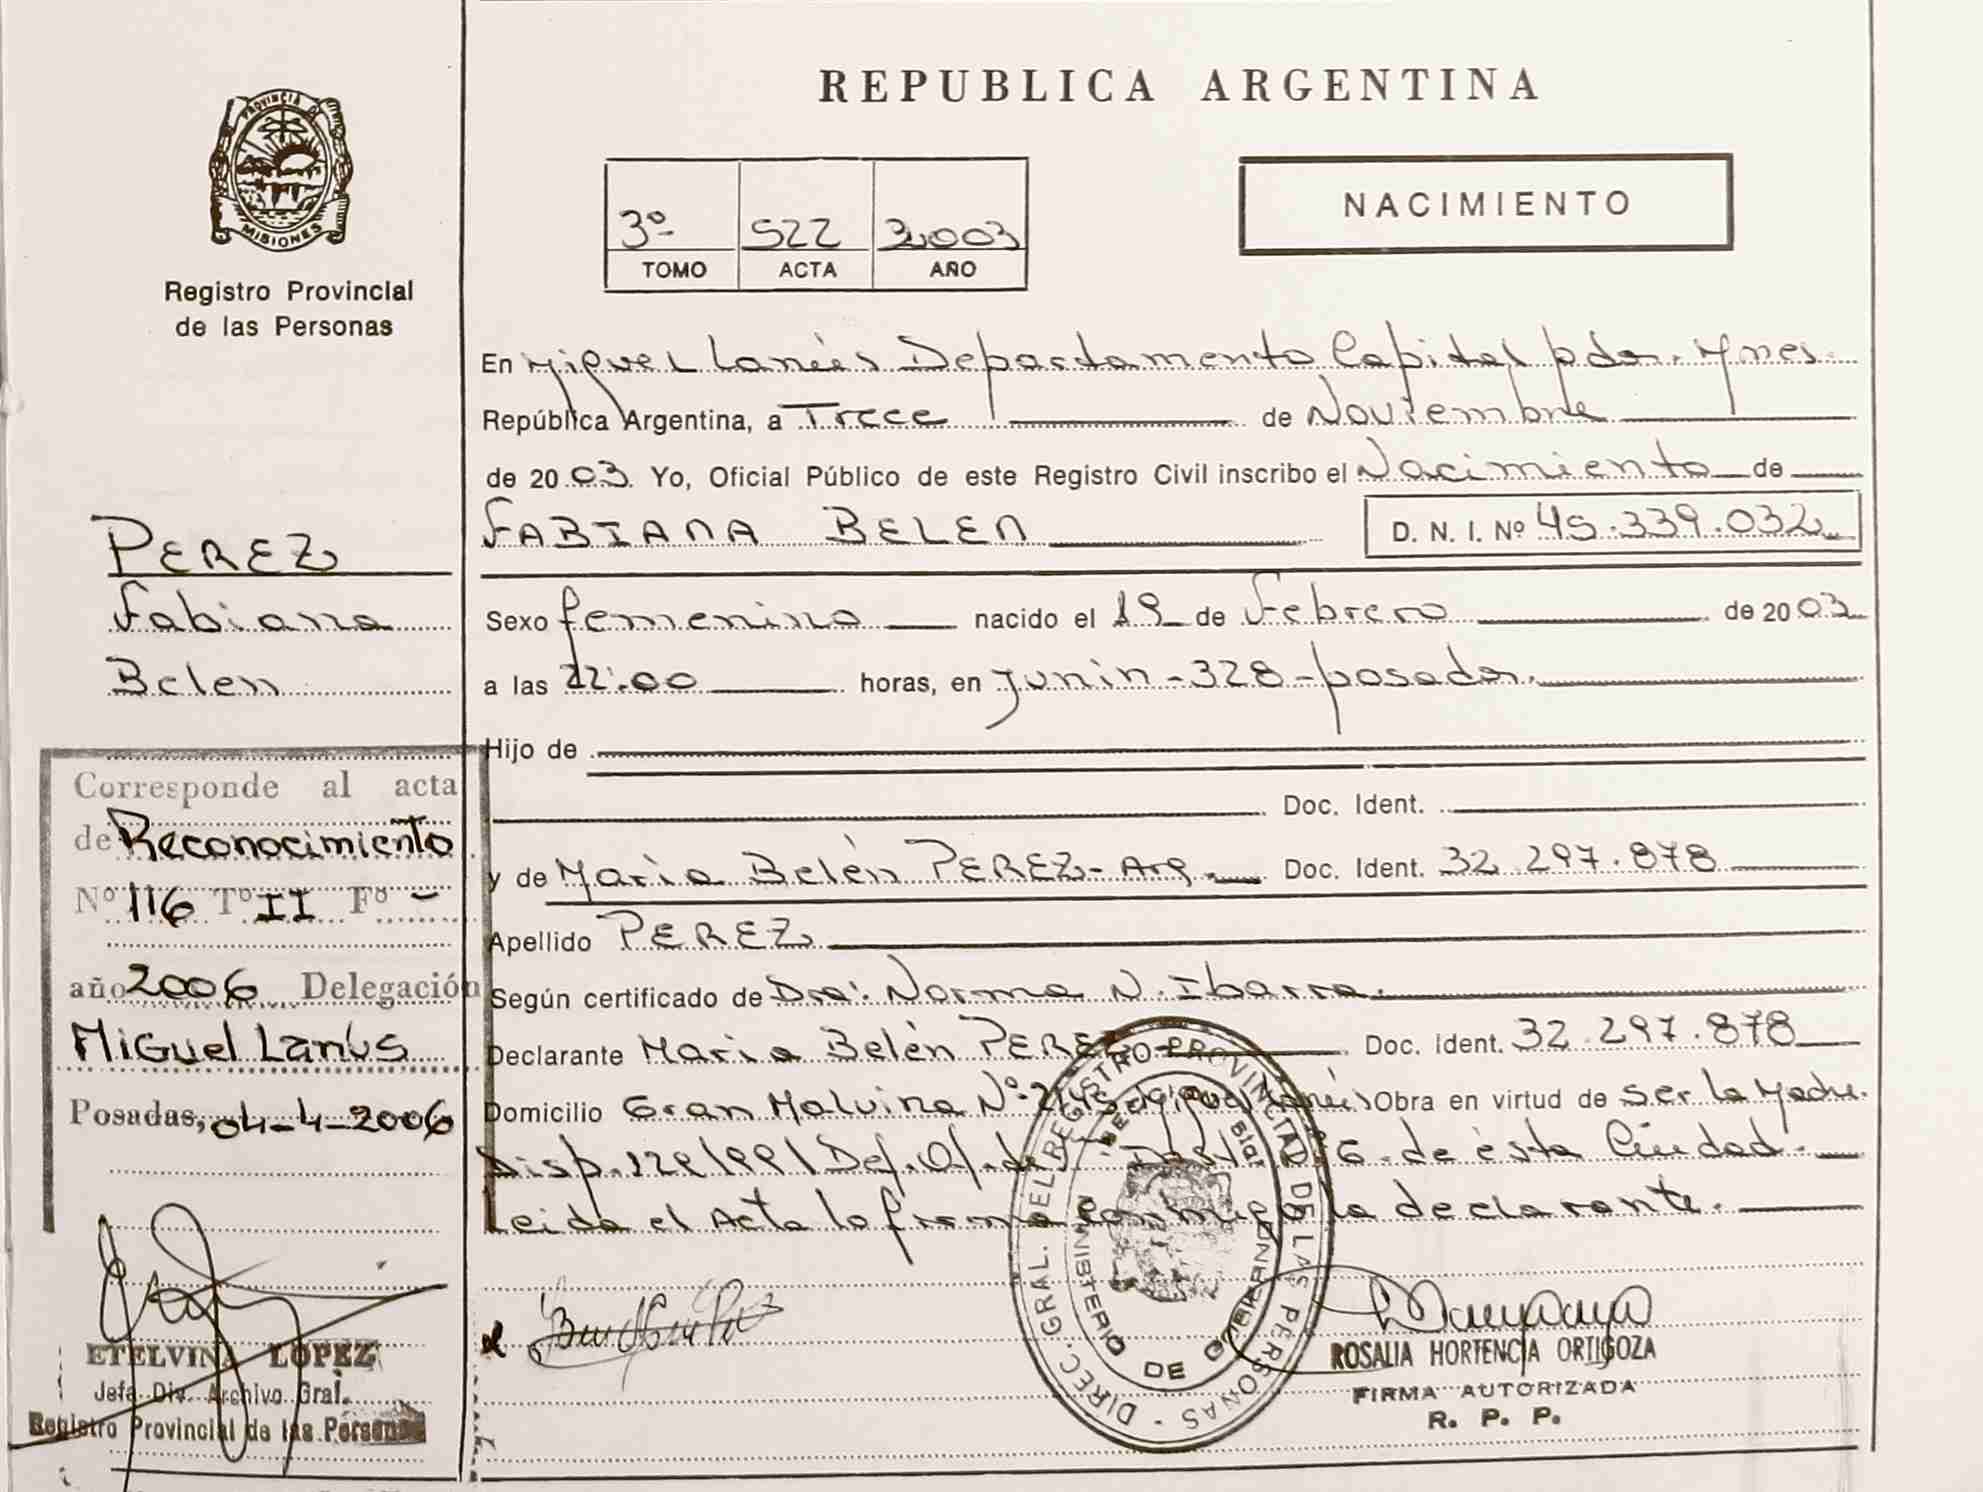 REPUBLICA ARGENTINA
PROVINCIA DE
MISIONES
Registro Provincial
de las Personas
3º 522 2003
TOMO ACTA AÑO
NACIMIENTO
En Miguel Lanús Departamento Capital Pcia. Mnes.
República Argentina, a Trece de Noviembre
de 2003 Yo, Oficial Público de este Registro Civil inscribo el Nacimiento de
FABIANA BELEN D. N. I. Nº 45.339.032
PEREZ
Fabiana
Belen
Sexo femenino nacido el 19 de Febrero de 2003
a las 22:00 horas, en Junin-328-posadas.
Hijo de
Doc. Ident.
y de Maria Belén PEREZ-Arg. Doc. Ident. 32.297.878
Apellido PEREZ
Según certificado de Dra. Norma N. Ibarra.
Declarante Maria Belén PEREZ Doc. Ident. 32.297.878
Domicilio Gran Malvina Nº Miguel Lanús Obra en virtud de ser la Madre.
Disp. 129/99/ Def. Of. de 6. de ésta Ciudad.
Leida el Acta la firma conmigo la declarante.
Corresponde al acta
de Reconocimiento
Nº 116 Tº II Fº -
año 2006 Delegación
Miguel Lanús
Posadas, 04-4-2006
ETELVINA LOPEZ
Jefa Div. Archivo Gral.
Registro Provincial de las Personas
DIREC. GRAL. DEL REGISTRO PROVINCIAL DE LAS PERSONAS
MINISTERIO DE GOBIERNO
ROSALIA HORTENCIA ORTIGOZA
FIRMA AUTORIZADA
R. P. P.